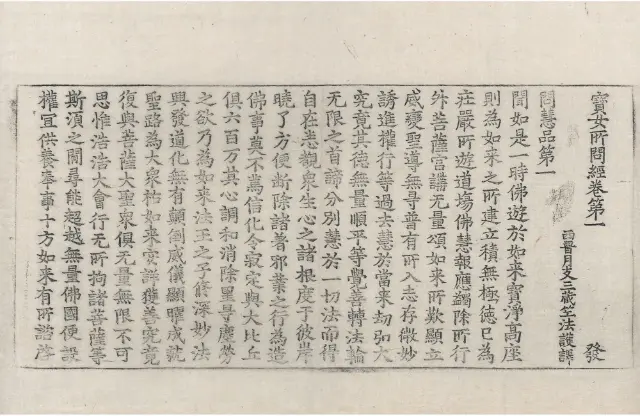 寶女所問經卷第一
西晉月支三藏竺法護譯
發
問慧品第一
聞如是一時佛遊於如来寶淨高座
則為如来之所建立積無極德已為
莊嚴所遊道場佛慧報應蠲除所行
外菩薩宮講无量頌如来所歎顯立
感變聖導無㝵普有所入志存微妙
誘進權行等過去慧於當来劫弘大
究竟其德無量順平等覺善轉法輪
无限之首諦分別慧於一切法而得
自在悉觀衆生心之諸根度于彼岸
曉了方便斷除諸著邪業之行為造
佛事莫不蒙信化令寂定與大比丘
俱六百万其心調和消除罣㝵塵勞
之欲乃為如来法王之子脩深妙法
興發道化無有顛倒威儀顯曜成就
聖路為大衆祐如来宗詳獲善究竟
復與菩薩大聖衆俱无量無限不可
思惟浩浩大會行无所拘諸菩薩等
斯湏之閒尋能超越無量佛國便設
權宜供養奉事十方如来有所諮啓